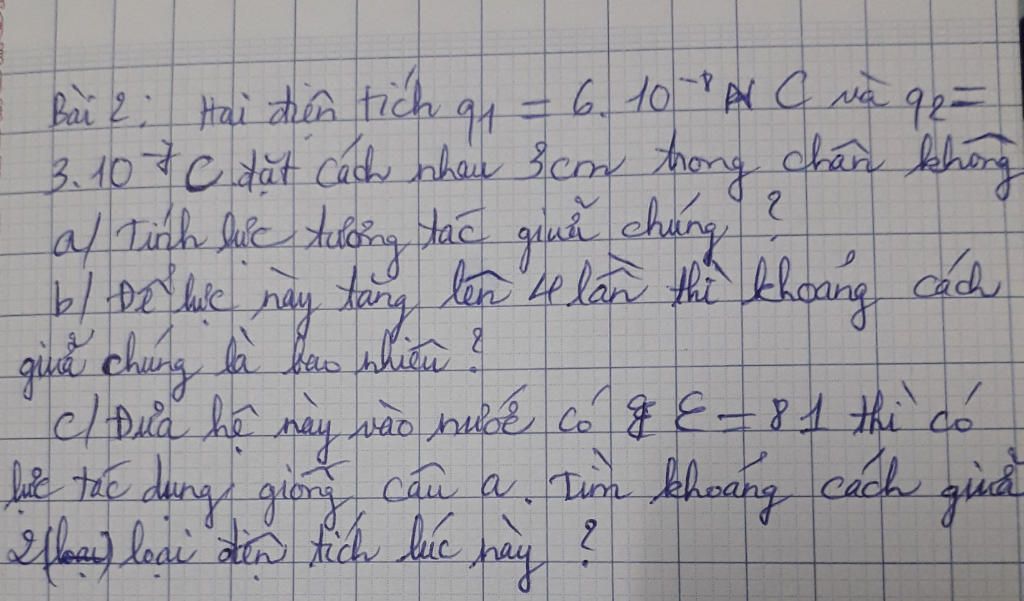 Bài 2: Hai điện tích q1 = 6. 10⁻⁸ C và q2 =
3.10⁻⁷ C đặt cách nhau 3cm trong chân không
a/ Tính lực tương tác giữa chúng ?
b/ Để lực này tăng lên 4 lần thì khoảng cách
giữa chúng là bao nhiêu ?
c/ Đưa hệ này vào nước có ε = 81 thì có
lực tác dụng giống câu a. Tìm khoảng cách giữa
2 (loại) loại điện tích lúc này ?